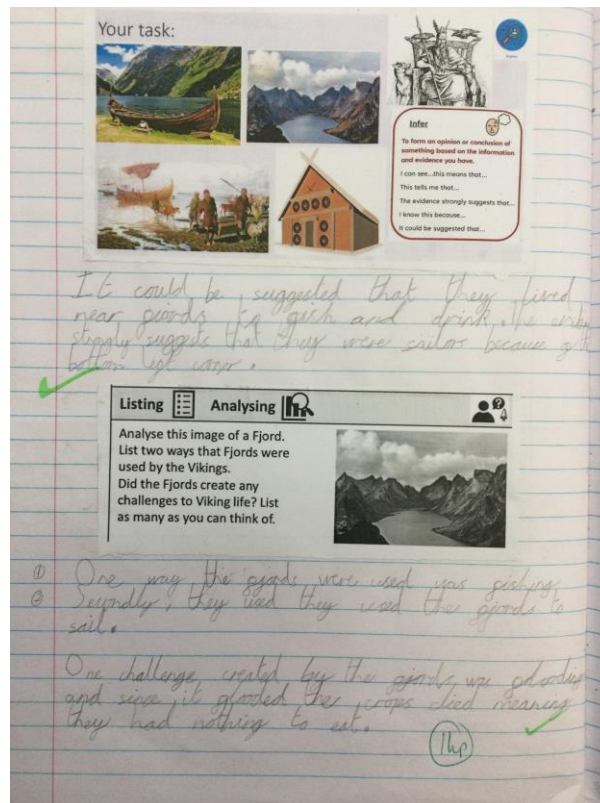 Your task:
Infer
To form an opinion or conclusion of
something based on the information
and evidence you have.
I can see...this means that...
This tells me that...
The evidence strongly suggests that...
I know this because...
It could be suggested that...
It could be suggested that they lived
near fjords to fish and drink, the
strongly suggests that they were sailors because
bottom left coner.
Listing Analysing
Analyse this image of a Fjord.
List two ways that Fjords were
used by the Vikings.
Did the Fjords create any
challenges to Viking life? List
as many as you can think of.
① One way the fjords were used was fishing
② Secondly, they used they used the fjords to
sail.
One challenge created by the fjords, was flooding
and since it flooded the crops died meaning
they had nothing to eat.
1hp